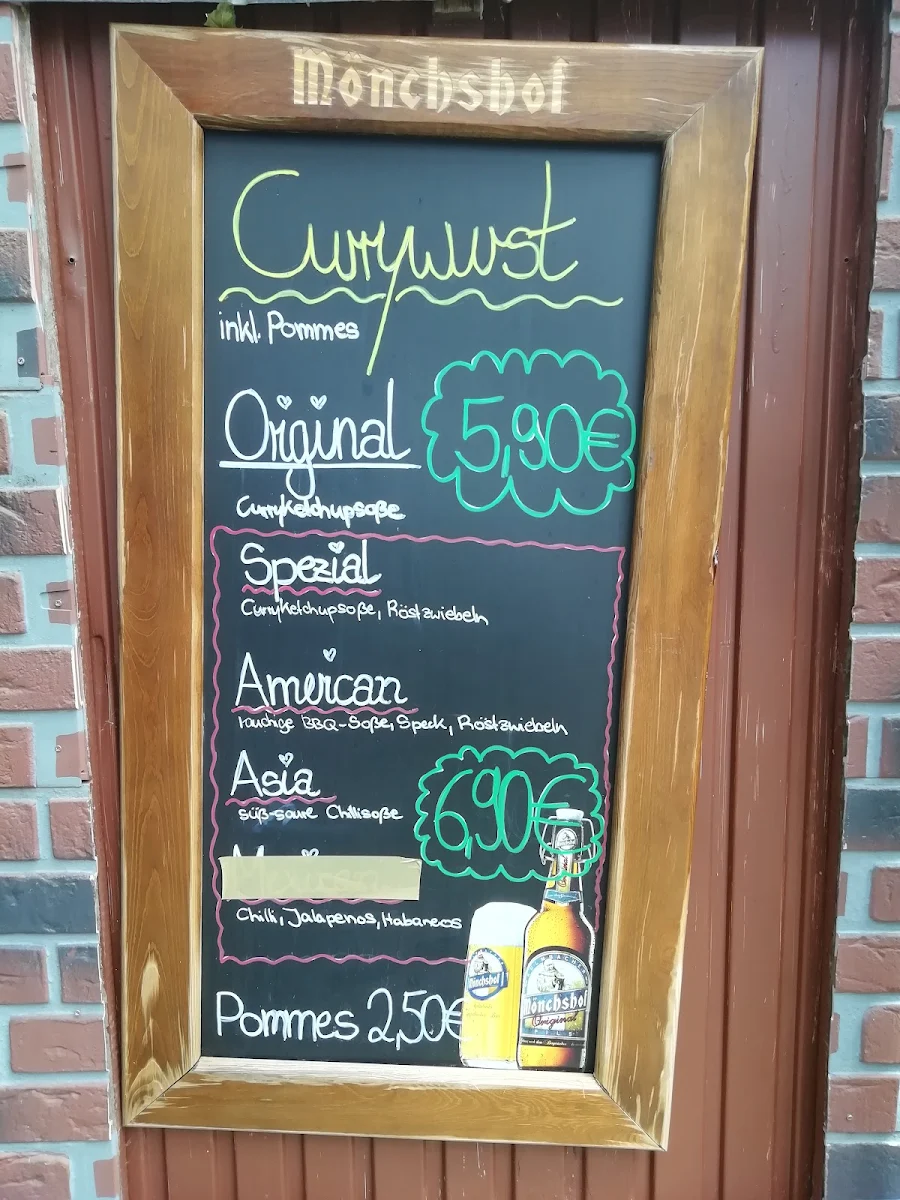 Mönchshof
Currywurst
inkl. Pommes
Original
5,90€
Curryketchupsoße
Spezial
Curryketchupsoße, Röstzwiebeln
American
rauchige BBQ-Soße, Speck, Röstzwiebeln
Asia
süß-saure Chillisoße
6,90€
Chilli, Jalapenos, Habaneos
Pommes 2,50€
Mönchshof
Mönchshof
Original
PILS